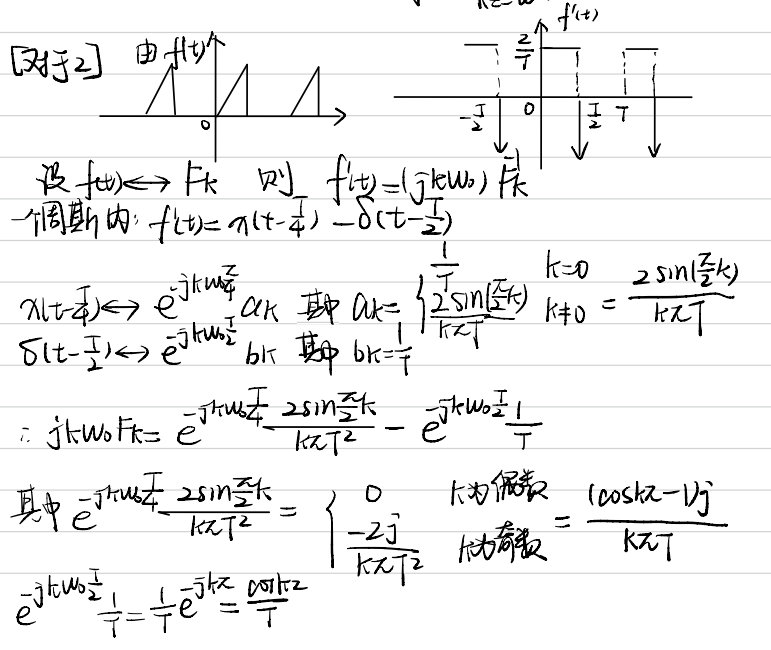 [对于2] 由 f(t)
0
f'(t)
2/T
-T/2 0 T/2 T
设 f(t)↔Fk 则 f'(t)=(jkω₀)Fk
一个周期内: f'(t)=x(t-T/4)-δ(t-T/2)
x(t-T/4)↔e^{-jkω₀T/4} ak 其中 ak={1/T k=0; 2sin(π/2 k)/kπT k≠0 = 2sin(π/2 k)/kπT
δ(t-T/2)↔e^{-jkω₀T/2} bk 其中 bk=1/T
∴ jkω₀Fk= e^{-jkω₀T/4} 2sin π/2 k/kπT² - e^{-jkω₀T/2} 1/T
其中 e^{-jkω₀T/4} 2sin π/2 k/kπT² = {0 k为偶数; -2j/kπT² k为奇数 = (coskπ-1)j/kπT
e^{-jkω₀T/2} 1/T = 1/T e^{-jkπ} = coskπ/T